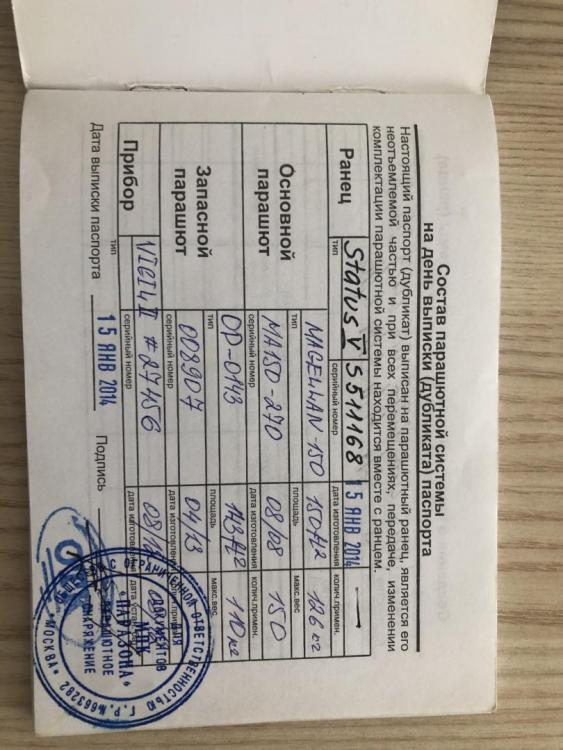 Состав парашютной системы
на день выписки (дубликата) паспорта
Настоящий паспорт (дубликат) выписан на парашютный ранец, является его
неотъемлемой частью и при всех перемещениях, передаче, изменении
комплектации парашютной системы находится вместе с ранцем.
Ранец
Status V S511168 15 ЯНВ 2014 —
тип серийный номер дата изготовления колич.примен.
Основной парашют
MAGELLAN-150 150 126 кг
тип площадь макс.вес
MA150-270 08/08 150
серийный номер дата изготовления колич.примен.
Запасной парашют
OP-0143 110 кг
тип площадь макс.вес
008907 04/13
серийный номер дата изготовления колич.примен.
Прибор
VIGIL II # 27456 08/
тип серийный номер дата изготовления дата
Дата выписки паспорта 15 ЯНВ 2014 Подпись
ОГРАНИЧЕННОЙ ОТВЕТСТВЕННОСТЬЮ Г.Р.№663282
* МОСКВА *
"ПАРАЗОНА"
ДЛЯ ДОКУМЕНТОВ
ПАРАШЮТНОЕ
СНАРЯЖЕНИЕ